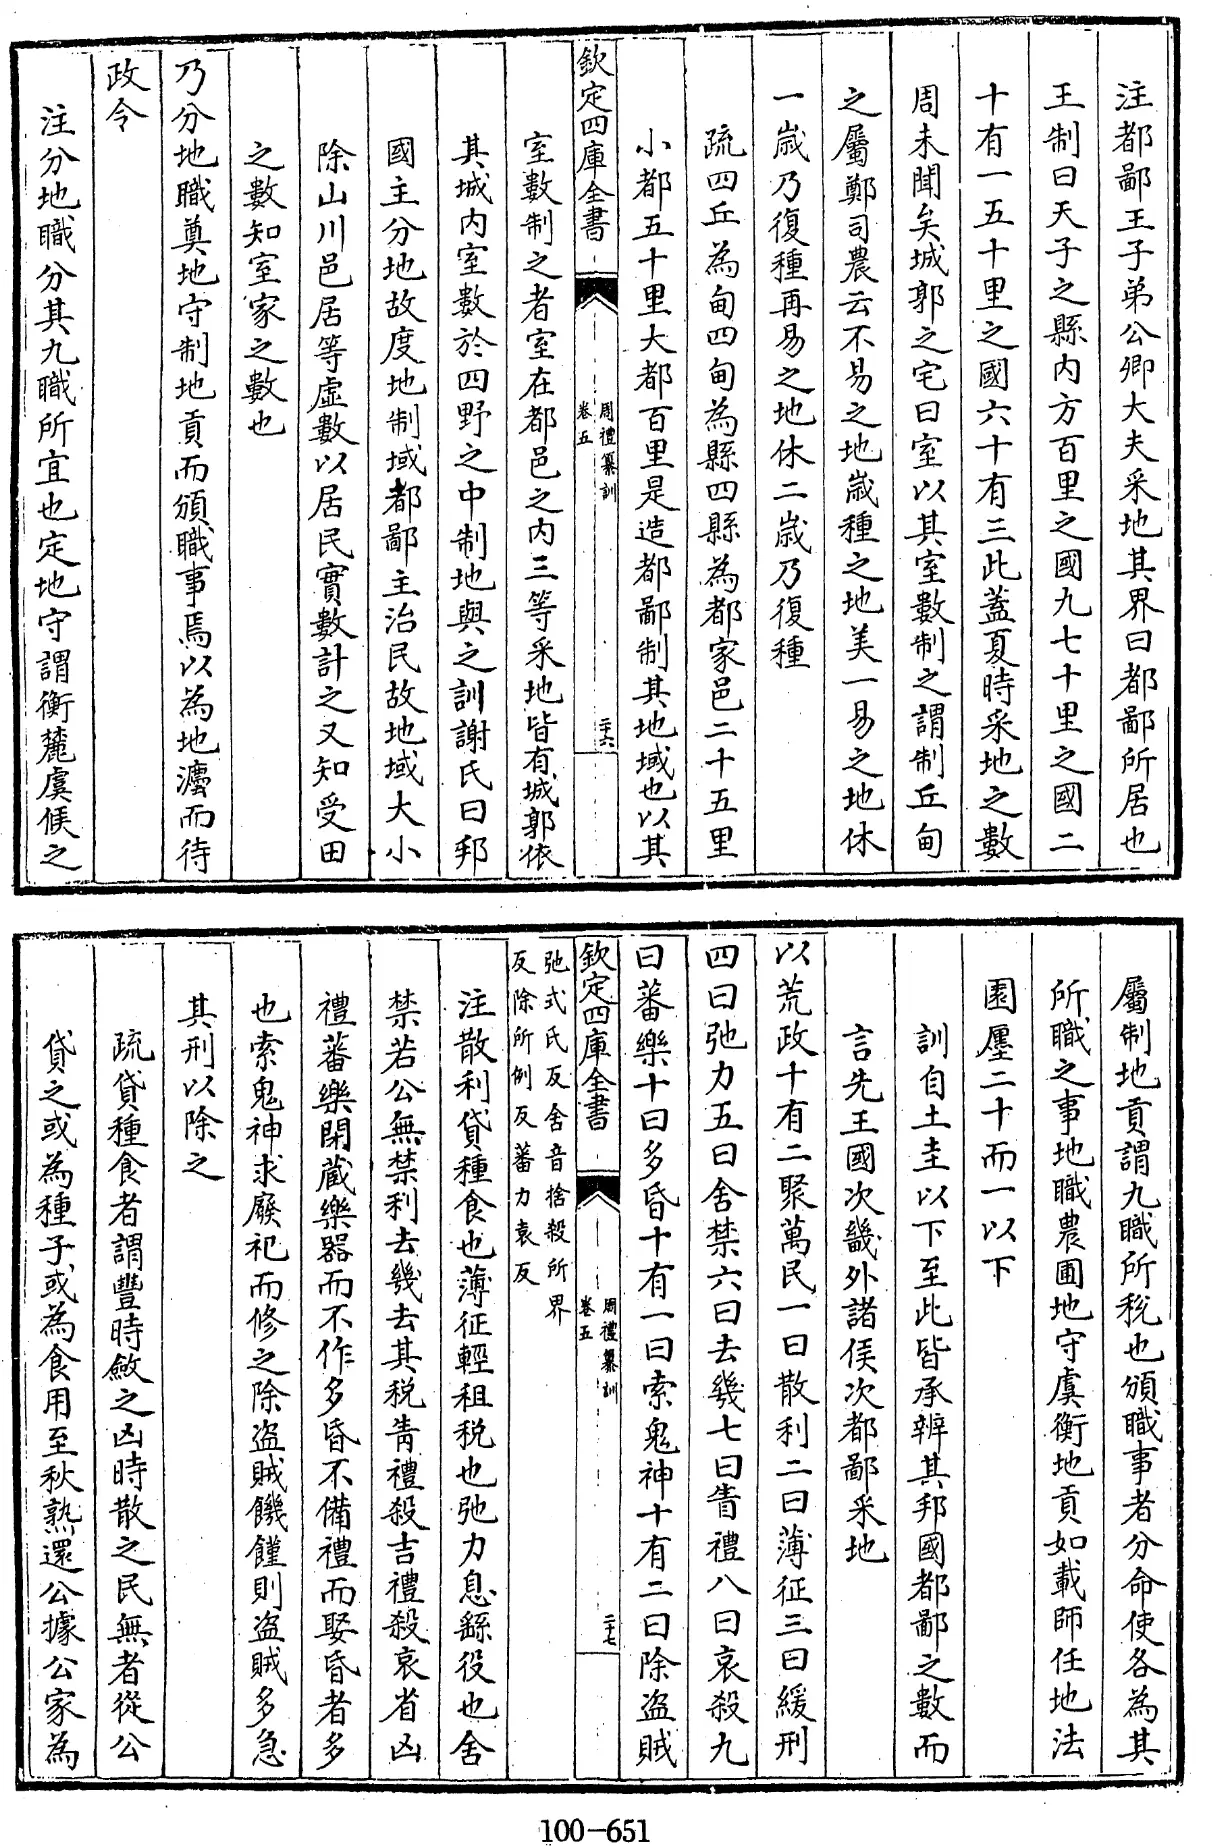 注都鄙王子弟公卿大夫采地其界曰都鄙所居也
王制曰天子之縣内方百里之國九七十里之國二
十有一五十里之國六十有三此蓋夏時采地之數
周未聞矣城郭之宅曰室以其室數制之謂制丘甸
之屬鄭司農云不易之地歳種之地美一易之地休
一歳乃復種再易之地休二歳乃復種
疏四丘為甸四甸為縣四縣為都家邑二十五里
小都五十里大都百里是造都鄙制其地域也以其
欽定四庫全書
周禮纂訓
卷五
二十六
室數制之者室在都邑之内三等采地皆有城郭依
其城内室數於四野之中制地與之訓謝氏曰邦
國主分地故度地制域都鄙主治民故地域大小
除山川邑居等虚數以居民實數計之又知受田
之數知室家之數也
乃分地職奠地守制地貢而頒職事焉以為地灋而待
政令
注分地職分其九職所宜也定地守謂衡麓虞候之
屬制地貢謂九職所税也頒職事者分命使各為其
所職之事地職農圃地守虞衡地貢如載師任地法
園廛二十而一以下
訓自土圭以下至此皆承辨其邦國都鄙之數而
言先王國次畿外諸侯次都鄙采地
以荒政十有二聚萬民一曰散利二曰薄征三曰緩刑
四曰弛力五曰舍禁六曰去幾七曰眚禮八曰哀殺九
曰蕃樂十曰多昏十有一曰索鬼神十有二曰除盗賊
欽定四庫全書
周禮纂訓
卷五
二十七
弛式氏反舍音捨殺所界
反除所例反蕃力袁反
注散利貸種食也薄征輕租税也弛力息繇役也舍
禁若公無禁利去幾去其税眚禮殺吉禮殺哀省凶
禮蕃樂閉蔵樂器而不作多昏不備禮而娶昏者多
也索鬼神求廢祀而修之除盗賊饑饉則盗賊多急
其刑以除之
疏貸種食者謂豐時斂之凶時散之民無者從公
貸之或為種子或為食用至秋熟還公據公家為
100-651